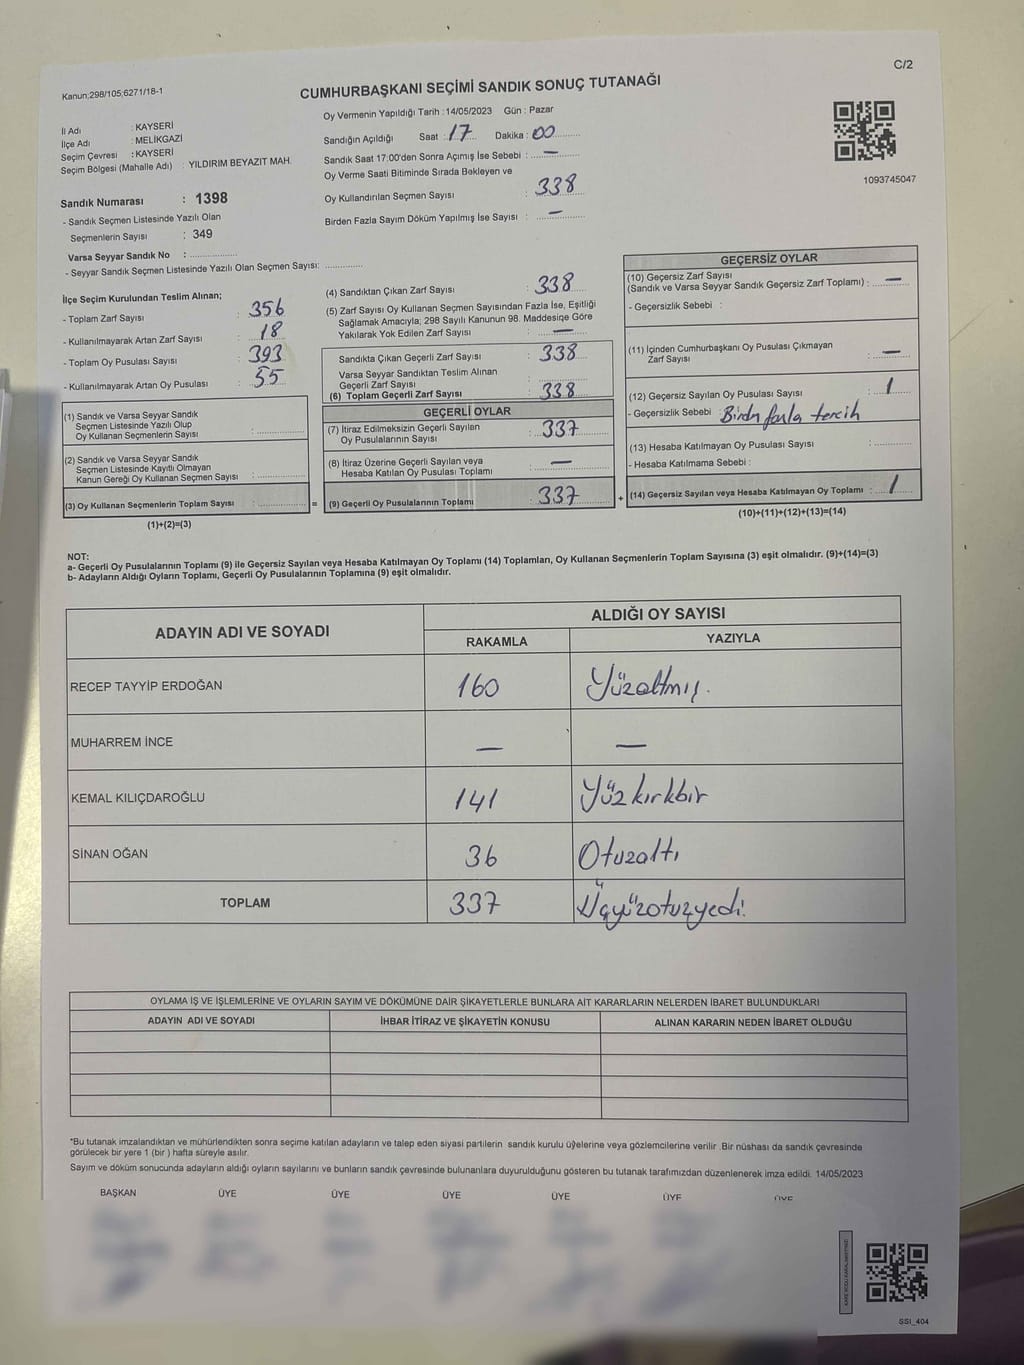 C/2
Kanun;298/105;6271/18-1
CUMHURBAŞKANI SEÇİMİ SANDIK SONUÇ TUTANAĞI
Oy Vermenin Yapıldığı Tarih : 14/05/2023 Gün : Pazar
İl Adı : KAYSERİ
İlçe Adı : MELİKGAZİ
Seçim Çevresi : KAYSERİ
Seçim Bölgesi (Mahalle Adı) : YILDIRIM BEYAZIT MAH.
Sandığın Açıldığı Saat : 17 Dakika : 00
Sandık Saat 17:00'den Sonra Açımış İse Sebebi : —
Oy Verme Saati Bitiminde Sırada Bekleyen ve
Oy Kullandırılan Seçmen Sayısı : 338
Birden Fazla Sayım Döküm Yapılmış İse Sayısı : —
1093745047
Sandık Numarası : 1398
- Sandık Seçmen Listesinde Yazılı Olan
Seçmenlerin Sayısı : 349
Varsa Seyyar Sandık No :
- Seyyar Sandık Seçmen Listesinde Yazılı Olan Seçmen Sayısı:
İlçe Seçim Kurulundan Teslim Alınan;
- Toplam Zarf Sayısı : 356
- Kullanılmayarak Artan Zarf Sayısı : 18
- Toplam Oy Pusulası Sayısı : 393
- Kullanılmayarak Artan Oy Pusulası : 55
(1) Sandık ve Varsa Seyyar Sandık
Seçmen Listesinde Yazılı Olup
Oy Kullanan Seçmenlerin Sayısı :
(2) Sandık ve Varsa Seyyar Sandık
Seçmen Listesinde Kayıtlı Olmayan
Kanun Gereği Oy Kullanan Seçmen Sayısı :
(3) Oy Kullanan Seçmenlerin Toplam Sayısı : =
(1)+(2)=(3)
(4) Sandıktan Çıkan Zarf Sayısı : 338
(5) Zarf Sayısı Oy Kullanan Seçmen Sayısından Fazla İse, Eşitliği
Sağlamak Amacıyla; 298 Sayılı Kanunun 98. Maddesine Göre
Yakılarak Yok Edilen Zarf Sayısı : —
Sandıkta Çıkan Geçerli Zarf Sayısı : 338
Varsa Seyyar Sandıktan Teslim Alınan
Geçerli Zarf Sayısı :
(6) Toplam Geçerli Zarf Sayısı : 338
GEÇERLİ OYLAR
(7) İtiraz Edilmeksizin Geçerli Sayılan
Oy Pusulalarının Sayısı : 337
(8) İtiraz Üzerine Geçerli Sayılan veya
Hesaba Katılan Oy Pusulası Toplamı : —
(9) Geçerli Oy Pusulalarının Toplamı : 337 +
GEÇERSİZ OYLAR
(10) Geçersiz Zarf Sayısı
(Sandık ve Varsa Seyyar Sandık Geçersiz Zarf Toplamı) : —
- Geçersizlik Sebebi :
(11) İçinden Cumhurbaşkanı Oy Pusulası Çıkmayan
Zarf Sayısı : —
(12) Geçersiz Sayılan Oy Pusulası Sayısı : 1
- Geçersizlik Sebebi : Birden fazla tercih
(13) Hesaba Katılmayan Oy Pusulası Sayısı :
- Hesaba Katılmama Sebebi :
(14) Geçersiz Sayılan veya Hesaba Katılmayan Oy Toplamı : 1
(10)+(11)+(12)+(13)=(14)
NOT:
a- Geçerli Oy Pusulalarının Toplamı (9) ile Geçersiz Sayılan veya Hesaba Katılmayan Oy Toplamı (14) Toplamları, Oy Kullanan Seçmenlerin Toplam Sayısına (3) eşit olmalıdır. (9)+(14)=(3)
b- Adayların Aldığı Oyların Toplamı, Geçerli Oy Pusulalarının Toplamına (9) eşit olmalıdır.
ADAYIN ADI VE SOYADI ALDIĞI OY SAYISI
RAKAMLA YAZIYLA
RECEP TAYYİP ERDOĞAN 160 Yüzaltmış.
MUHARREM İNCE — —
KEMAL KILIÇDAROĞLU 141 Yüz kırkbir
SİNAN OĞAN 36 Otuzaltı
TOPLAM 337 Üçyüzotuzyedi.
OYLAMA İŞ VE İŞLEMLERİNE VE OYLARIN SAYIM VE DÖKÜMÜNE DAİR ŞİKAYETLERLE BUNLARA AİT KARARLARIN NELERDEN İBARET BULUNDUKLARI
ADAYIN ADI VE SOYADI İHBAR İTİRAZ VE ŞİKAYETİN KONUSU ALINAN KARARIN NEDEN İBARET OLDUĞU
*Bu tutanak imzalandıktan ve mühürlendikten sonra seçime katılan adayların ve talep eden siyasi partilerin sandık kurulu üyelerine veya gözlemcilerine verilir Bir nüshası da sandık çevresinde
görülecek bir yere 1 (bir ) hafta süreyle asılır.
Sayım ve döküm sonucunda adayların aldığı oyların sayılarını ve bunların sandık çevresinde bulunanlara duyurulduğunu gösteren bu tutanak tarafımızdan düzenlenerek imza edildi. 14/05/2023
BAŞKAN ÜYE ÜYE ÜYE ÜYE ÜYE ÜYE
SSI_404